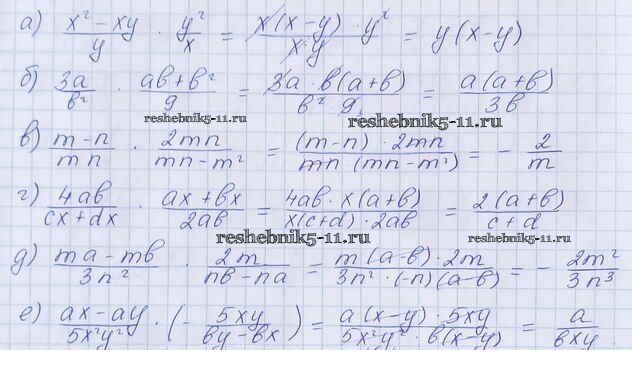 а) (x² - xy)/y · y²/x = (x(x-y) · y²)/(x·y) = y(x-y)
б) 3a/в² · (aв+в²)/9 = (3a · в(a+в))/(в² 9) = (a(a+в))/(3в)
reshebnik5-11.ru
reshebnik5-11.ru
в) (m-n)/(mn) · 2mn/(mn-m²) = ((m-n) · 2mn)/(mn (mn-m²)) = - 2/m
г) 4aв/(cx+dx) · (ax+вx)/(2aв) = (4aв · x(a+в))/(x(c+d) · 2aв) = (2(a+в))/(c+d)
reshebnik5-11.ru
reshebnik5-11.ru
д) (ma-mв)/(3n²) · 2m/(nв-na) = (m(a-в) · 2m)/(3n² · (-n)(a-в)) = - 2m²/3n³
е) (ax-ay)/(5x²y²) · (- 5xy/(вy-вx)) = (a(x-y) · 5xy)/(5x²y² · в(x-y)) = a/(вxy)